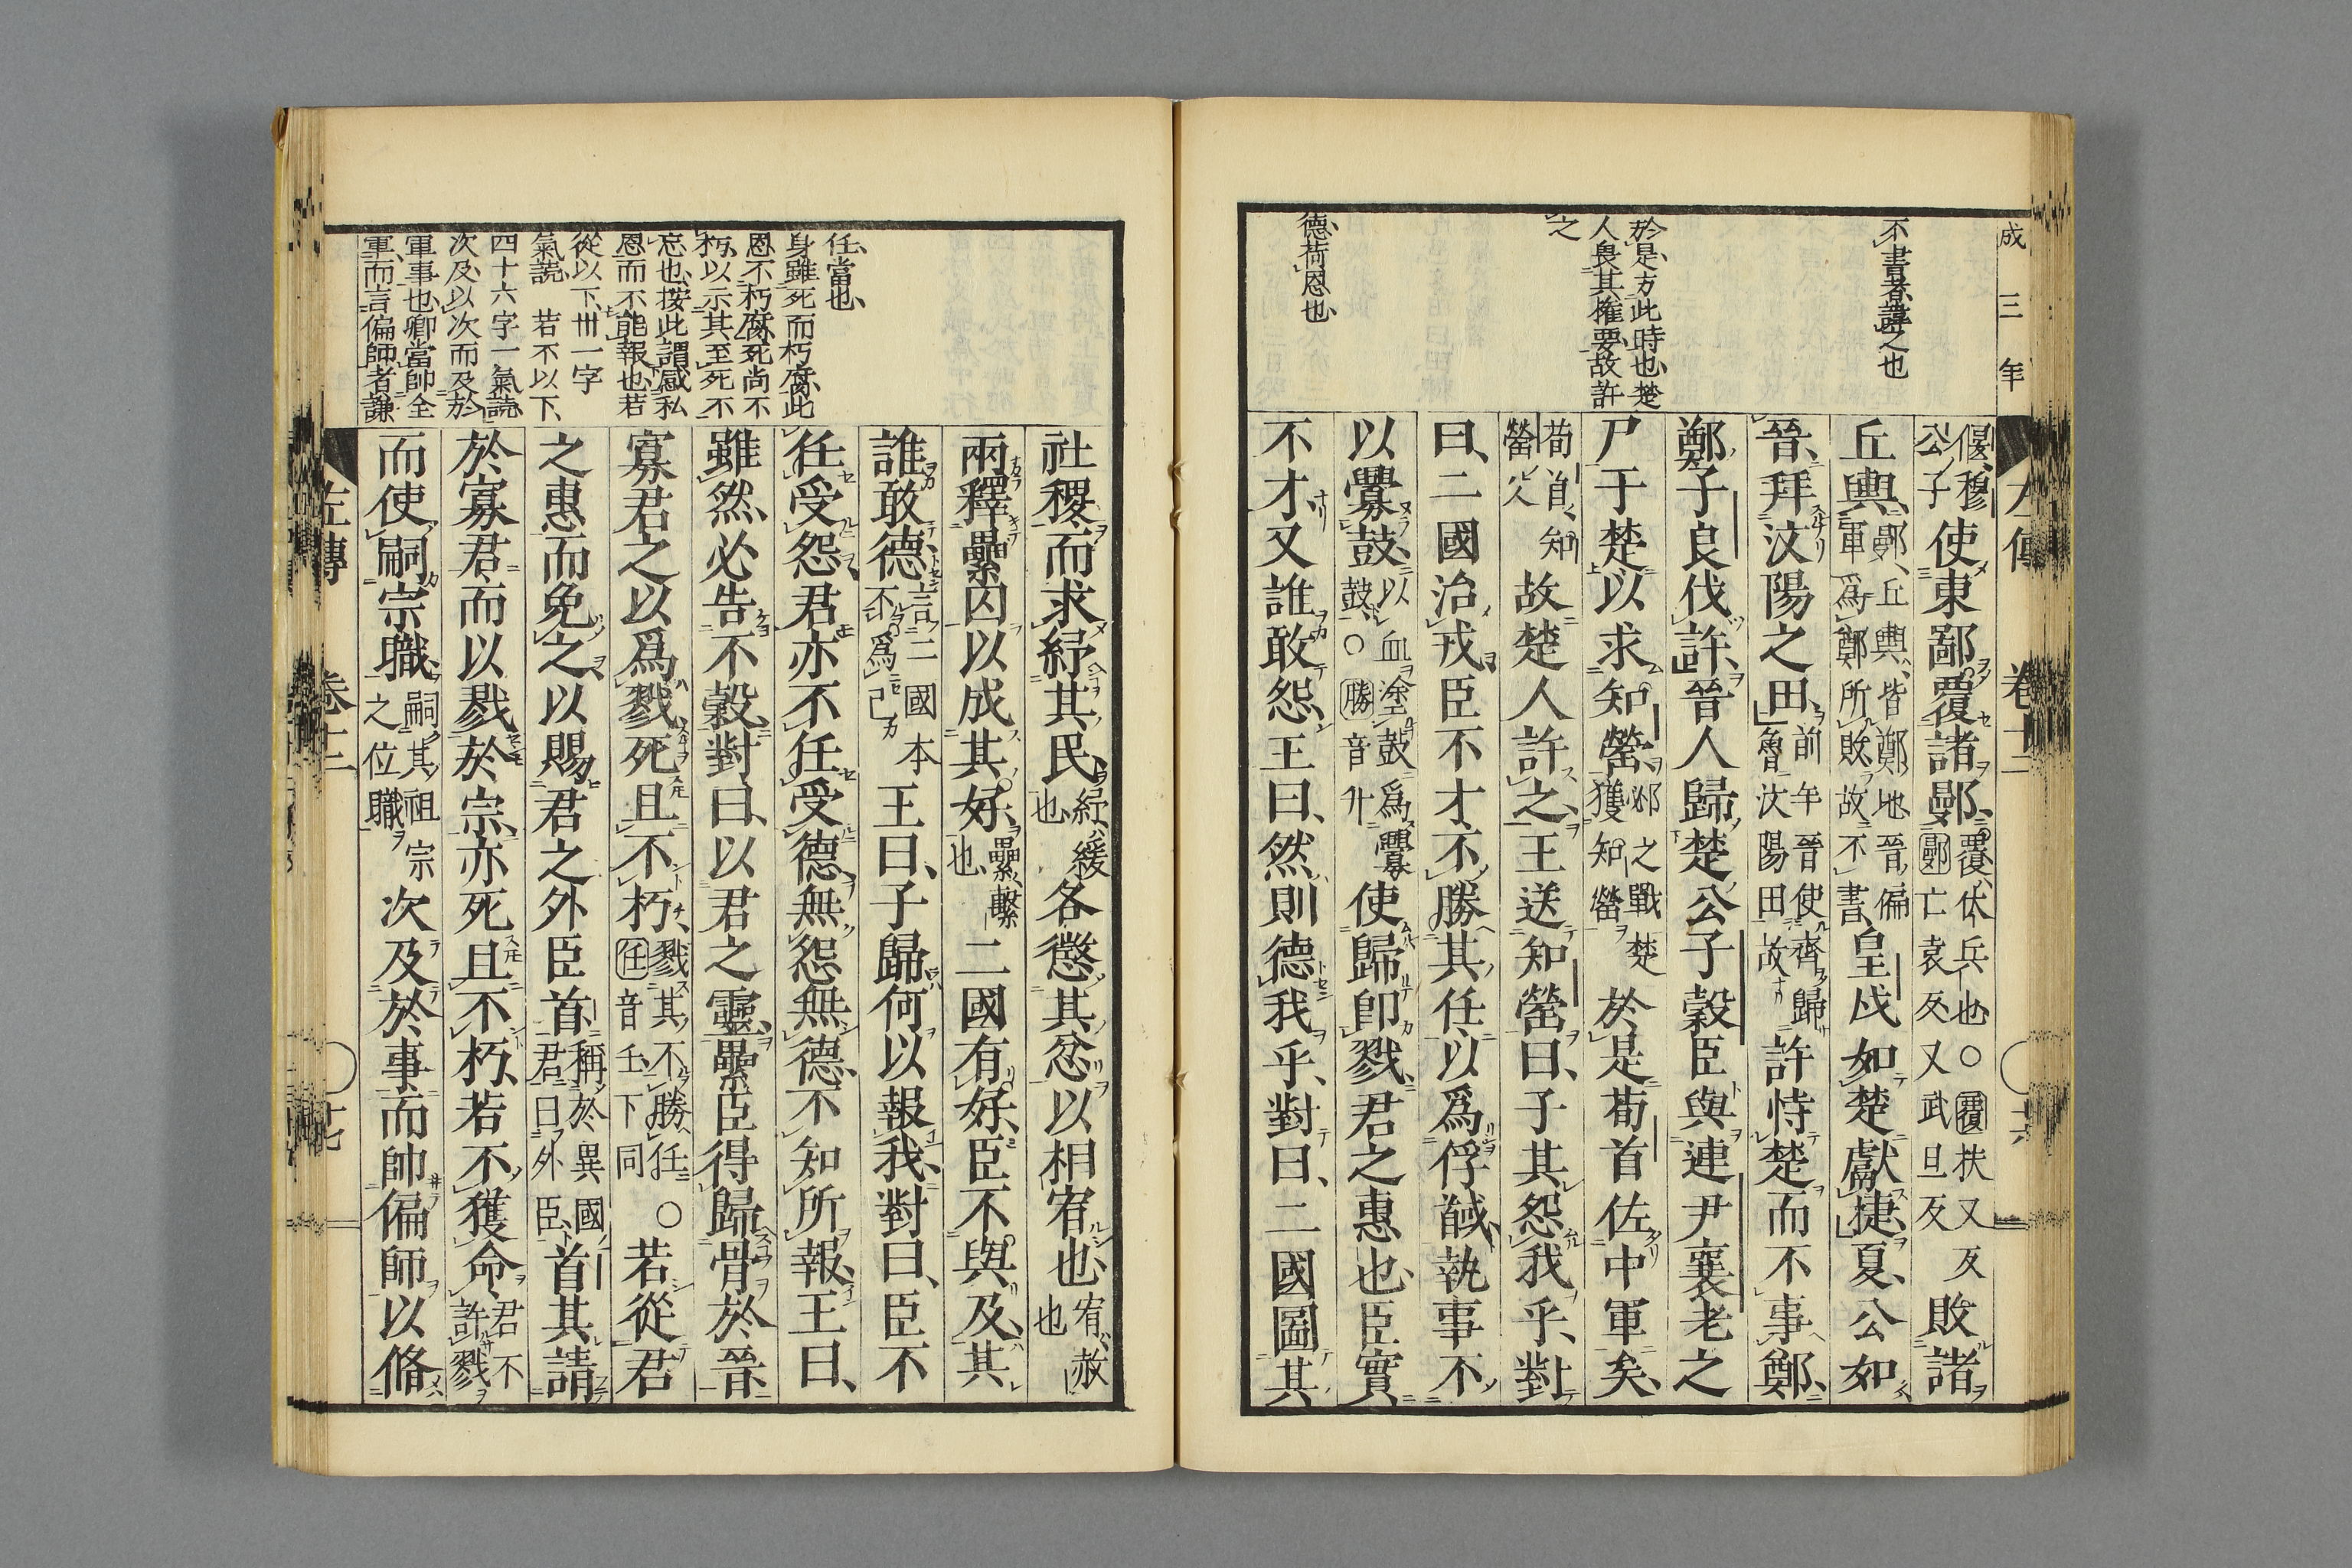 成三年
左傳 卷十二 十六
不書者諱之也
於是方此時也楚
人畏其權要故許
之
德荷恩也
偃穆公子使東鄙覆諸鄤覆伏兵也○覆扶又反鄤亡袁反又武旦反敗諸
丘輿鄤丘輿皆鄭地晉偏軍爲鄭所敗故不書皇戌如楚獻捷夏公如
晉拜汶陽之田前年晉使齊歸魯汶陽田故許恃楚而不事鄭
鄭子良伐許晉人歸楚公子穀臣與連尹襄老之
尸于楚以求知罃邲之戰楚獲知罃於是荀首佐中軍矣
荀首知罃父故楚人許之王送知罃曰子其怨我乎對
曰二國治戎臣不才不勝其任以爲俘馘執事不
以釁鼓以血塗鼓爲釁鼓○勝音升使歸卽戮君之惠也臣實
不才又誰敢怨王曰然則德我乎對曰二國圖其
任當也
身雖死而朽腐此
恩不朽腐死尚不
朽以示其至死不
忘也按此謂感私
恩而不能報也若
從以下卅一字
氣読 若不以下
四十六字一氣読
次及以次而及於
軍事也卿當帥全
軍而言偏師者謙
社稷而求紓其民紓緩也各懲其忿以相宥也宥赦也
兩釋纍囚以成其好纍繫也二國有好臣不與及其
誰敢德言二國本不爲己王曰子歸何以報我對曰臣不
任受怨君亦不任受德無怨無德不知所報王曰
雖然必告不穀對曰以君之靈纍臣得歸骨於晉
寡君之以爲戮死且不朽戮其不勝任○任音壬下同若從君
之惠而免之以賜君之外臣首稱於異國君曰外臣首其請
於寡君而以戮於宗亦死且不朽若不獲命君不許戮
而使嗣宗職嗣其祖宗之位職次及於事而帥偏師以脩
左傳 卷十二 十七